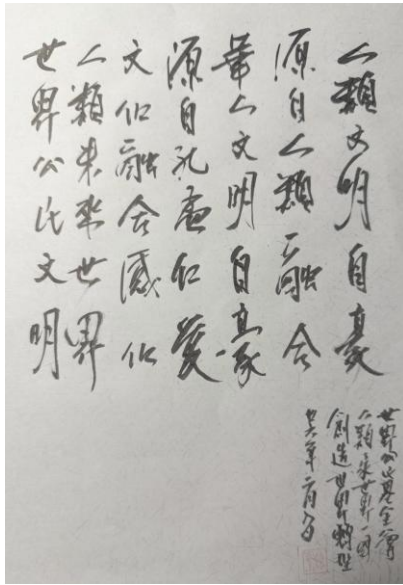 人類文明自豪
源自人類融合
華人文明自豪
源自礼善仁愛
文化融合感化
人類未來世界
世界公民文明
世界公民基金會
人類未來世界一國
創造世界